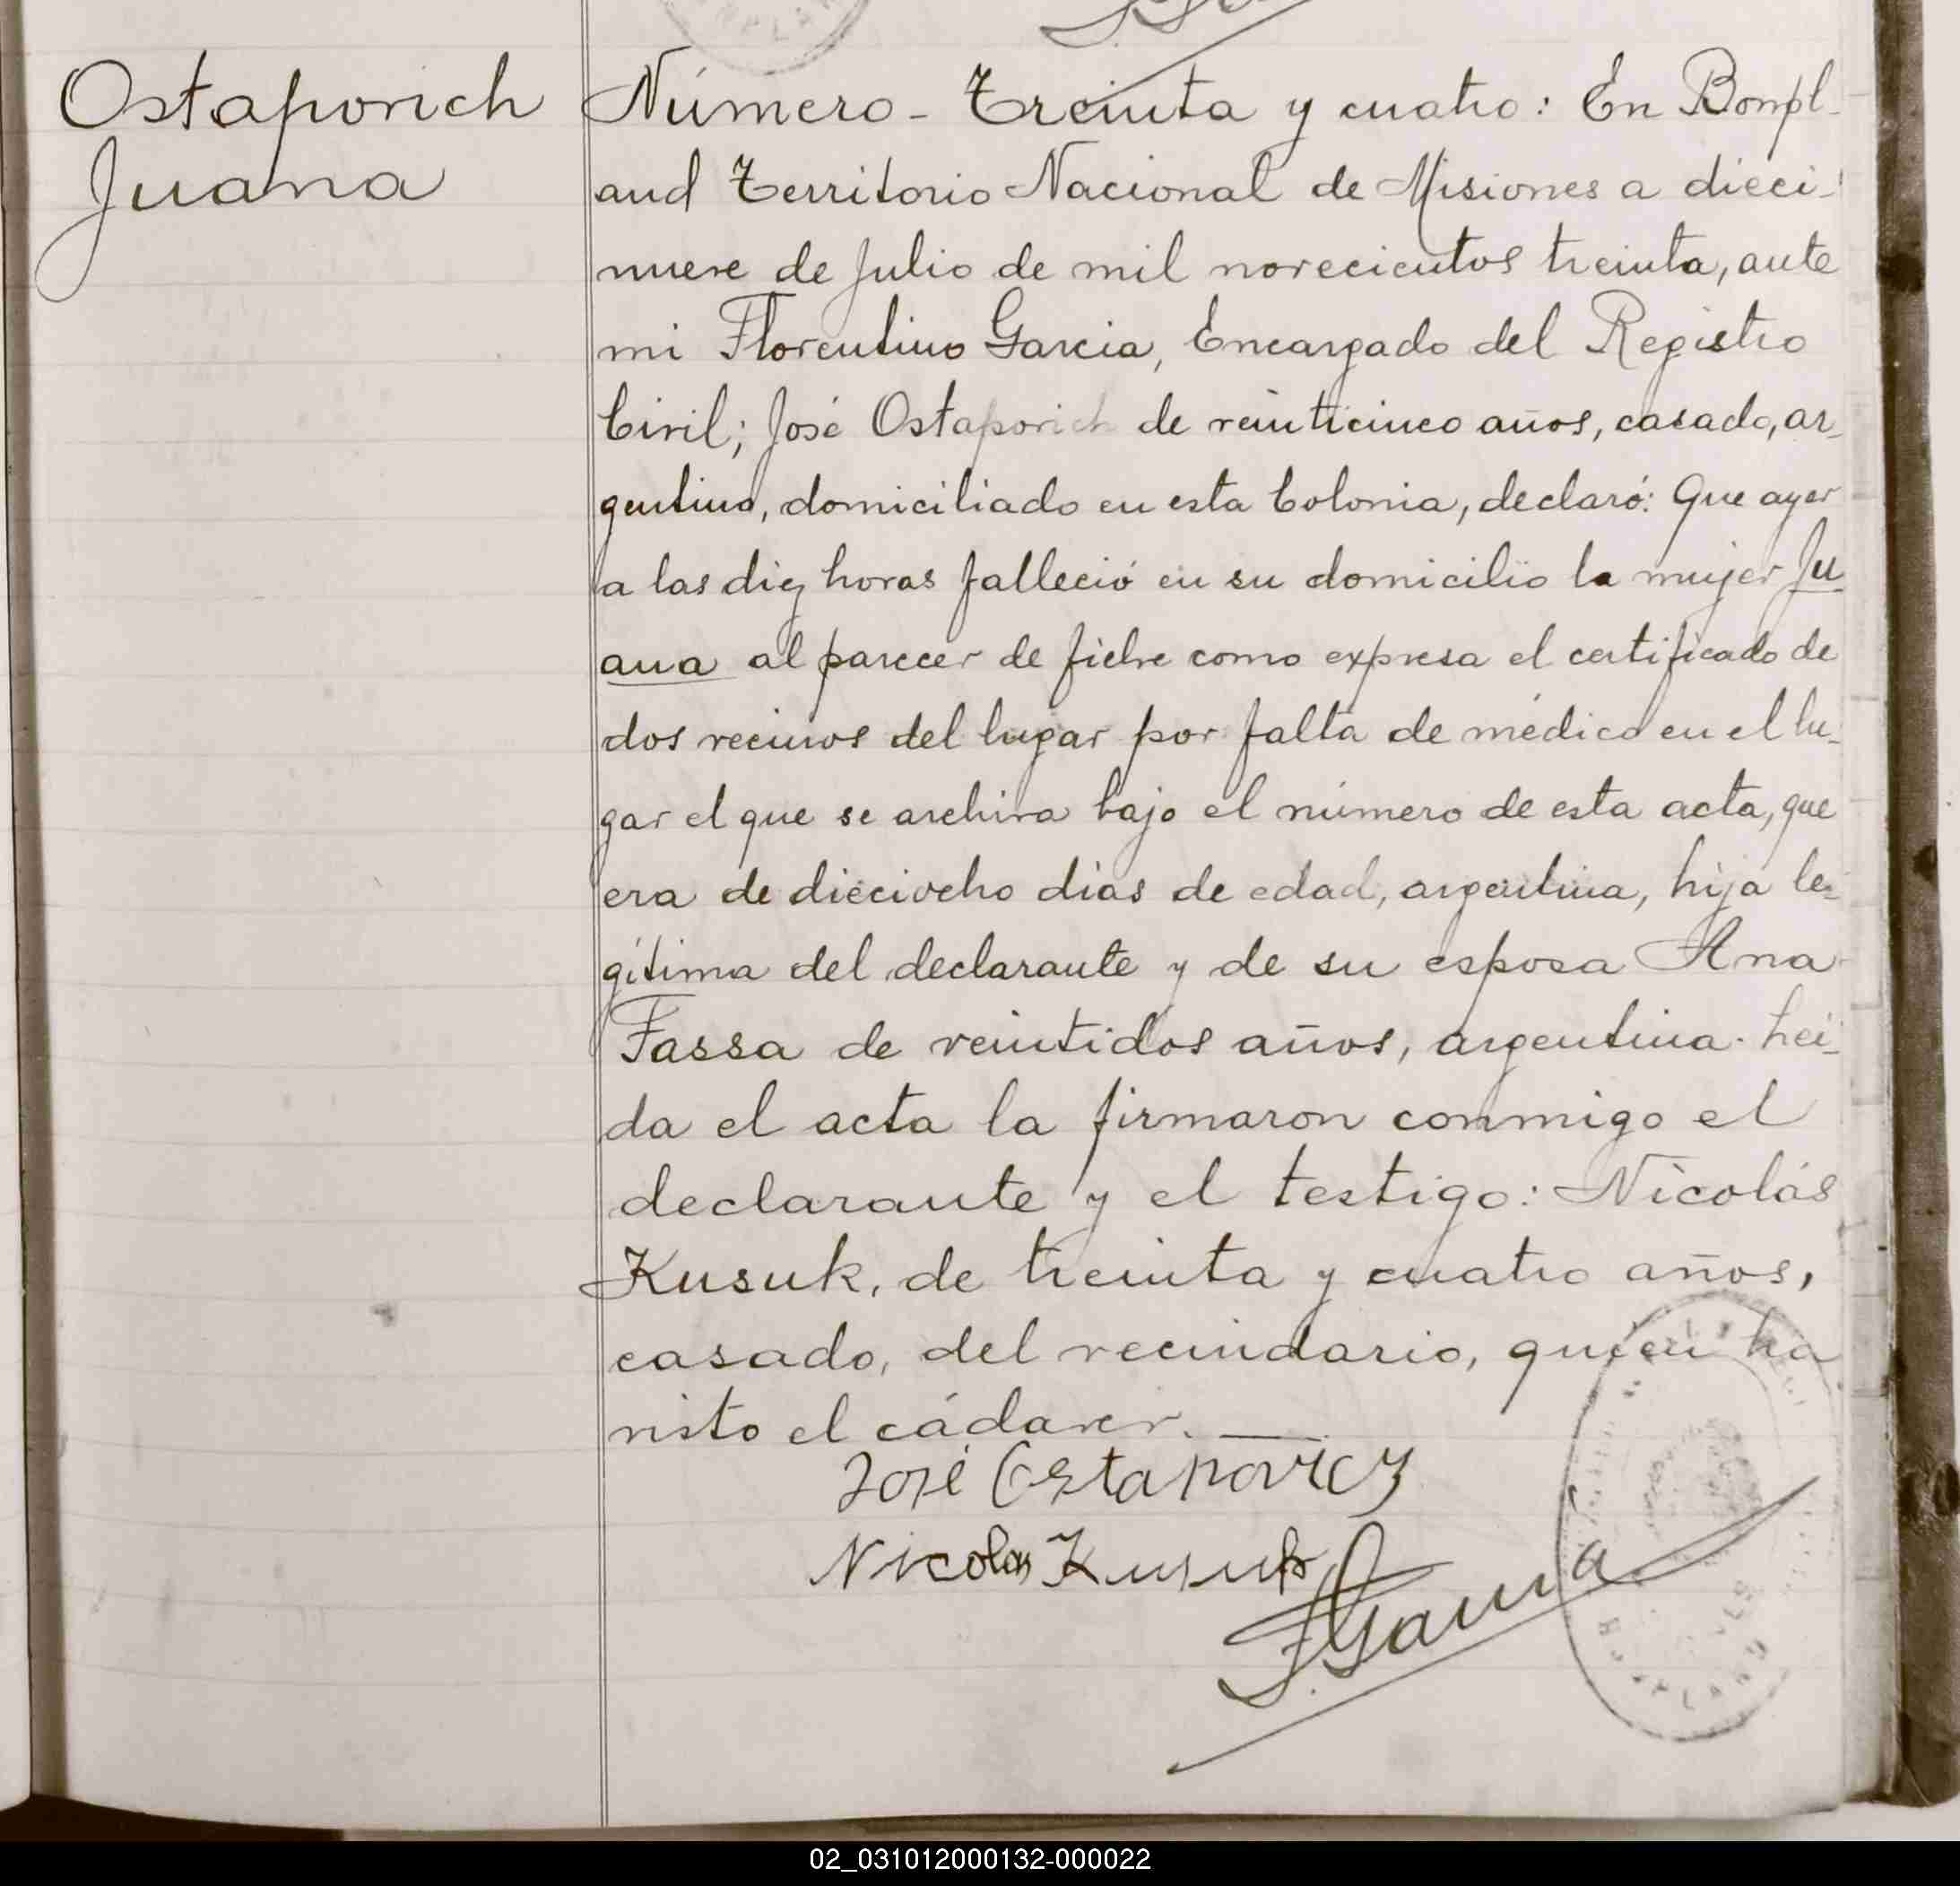 Ostapovich
Juana
Número - Treinta y cuatro: En Bonpl-
and Territorio Nacional de Misiones a dieci-
nueve de Julio de mil novecientos treinta, ante
mi Florentino Garcia, Encargado del Registro
Civil; José Ostapovich de veinticinco años, casado, ar-
gentino, domiciliado en esta Colonia, declaró: Que ayer
a las diez horas falleció en su domicilio la mujer Ju
ana al parecer de fiebre como expresa el certificado de
dos vecinos del lugar por falta de médico en el lu-
gar el que se archiva bajo el número de esta acta, que
era de dieciocho dias de edad, argentina, hija le-
gítima del declarante y de su esposa Ana
Fassa de veintidos años, argentina. Leí-
da el acta la firmaron conmigo el
declarante y el testigo: Nicolás
Kusuk, de treinta y cuatro años,
casado, del vecindario, quien ha
visto el cádaver.
José Ostapovicz
Nicolas Kusuk
FGarcia
BONPLAND
02_031012000132-000022